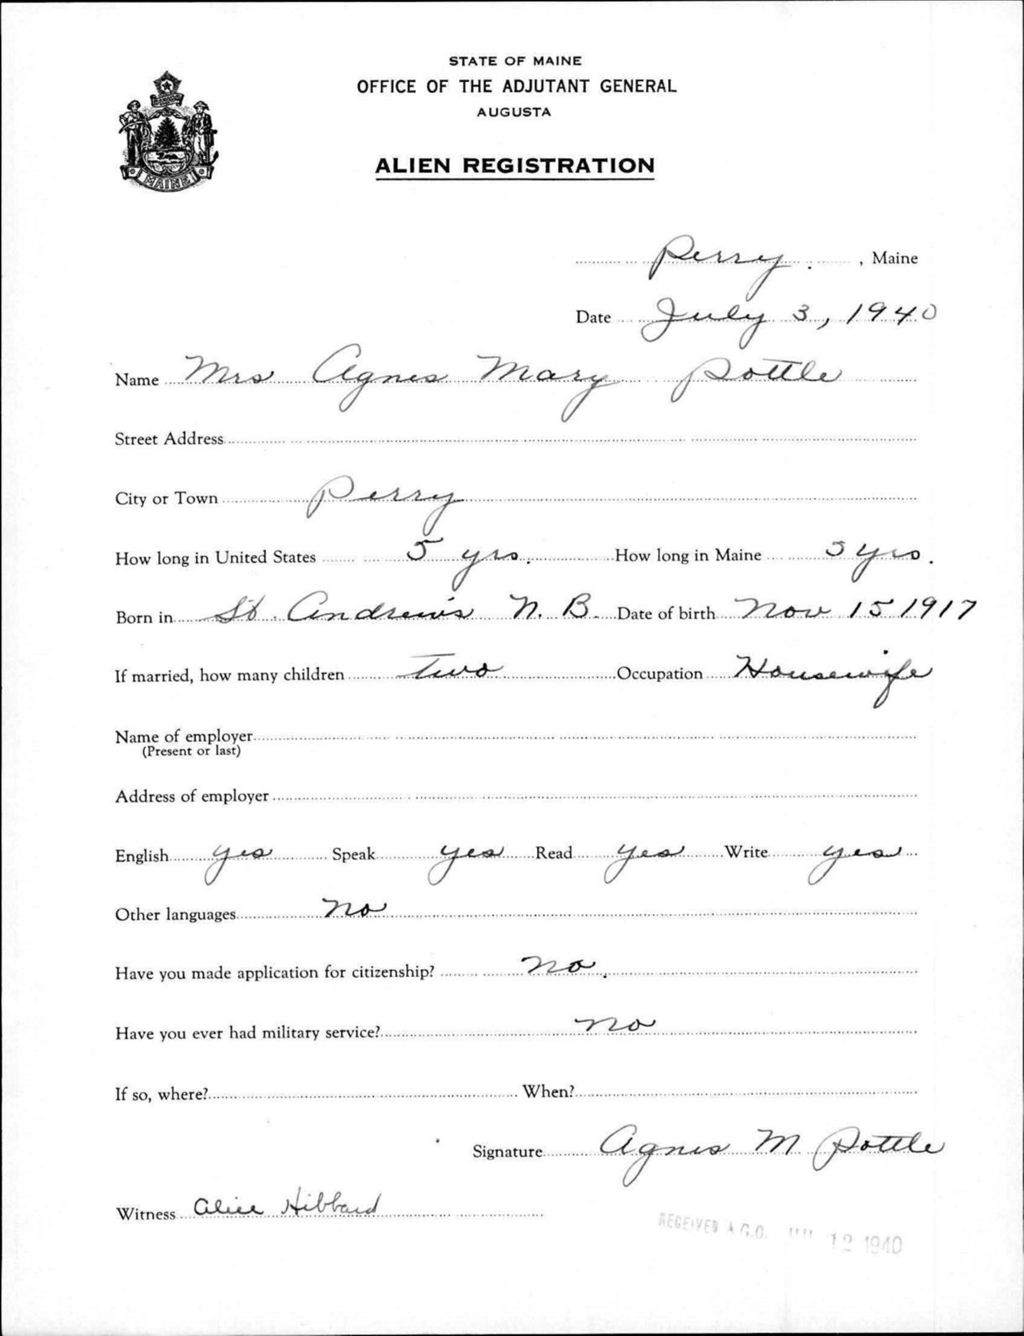 STATE OF MAINE
OFFICE OF THE ADJUTANT GENERAL
AUGUSTA
ALIEN REGISTRATION
MAINE
Perry, Maine
Date July 3, 1940
Name Mrs Agnes Mary Pottle
Street Address
City or Town Perry
How long in United States 5 yrs. How long in Maine 5 yrs.
Born in St. Andrews N.B. Date of birth Nov 15 1917
If married, how many children Two Occupation Housewife
Name of employer
(Present or last)
Address of employer
English yes Speak yes Read yes Write yes
Other languages No
Have you made application for citizenship? No.
Have you ever had military service? No
If so, where? When?
Signature Agnes M Pottle
Witness Alice Hibbard
RECEIVED A.G.O. 12 1940